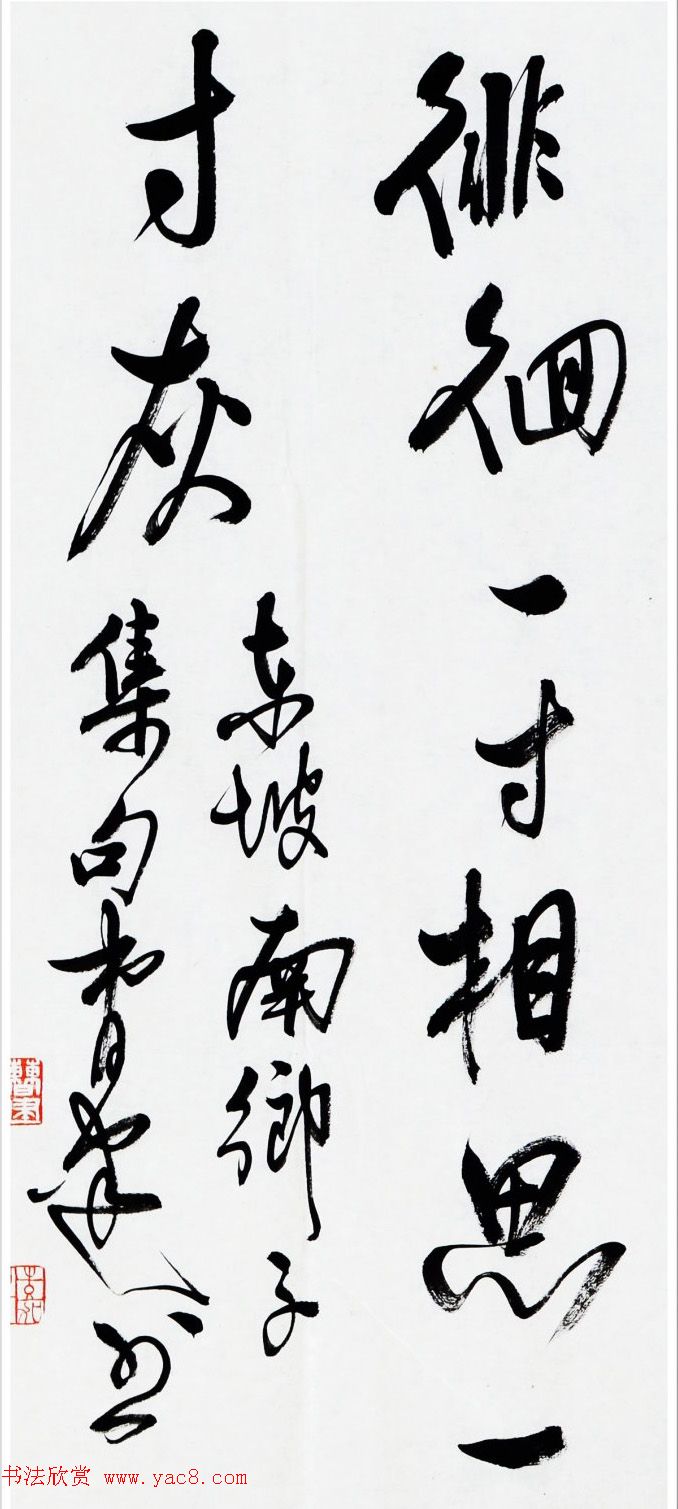 徘徊一寸相思一
寸灰
东坡南鄉子
集句
书法欣赏 www.yac8.com